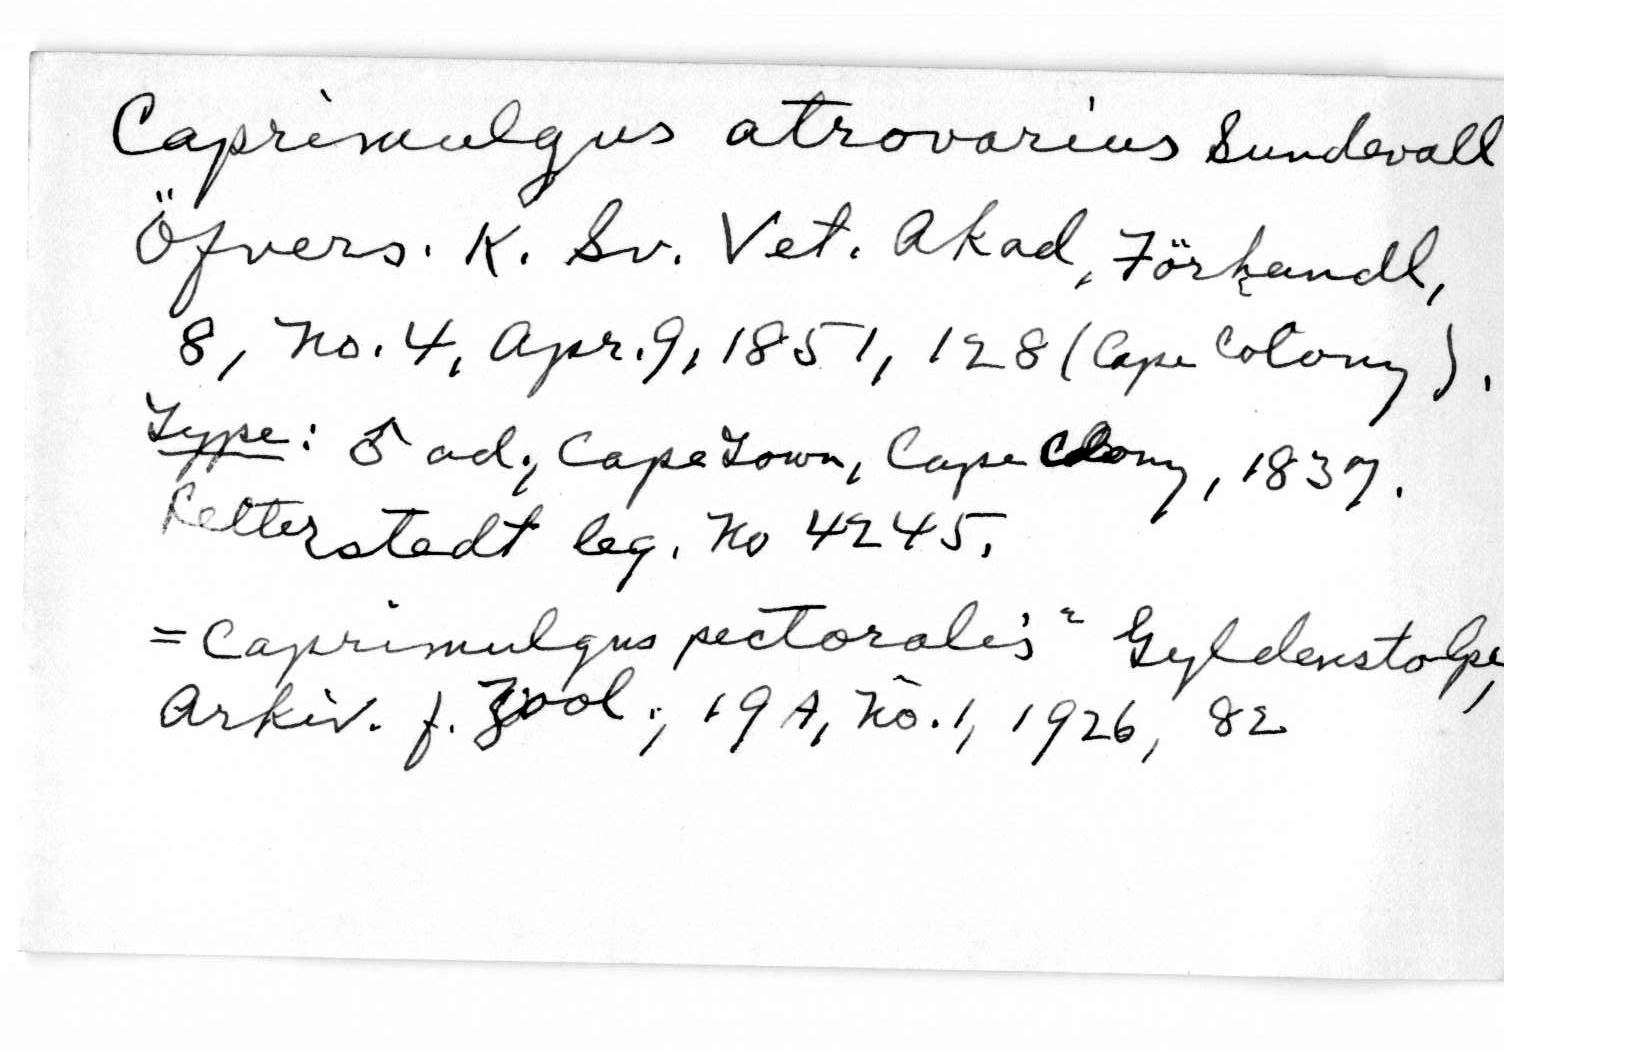 Caprimulgus atrovarius Sundevall
Öfvers. K. Sv. Vet. Akad, Förhandl,
8, No. 4, Apr. 9, 1851, 128 (Cape Colony).
Type: ♂ ad., Cape Town, Cape Colony, 1837.
Letterstedt leg. No 4245.
= Caprimulgus pectoralis" Gyldenstolpe,
Arkiv. f. Zool., 19A, No. 1, 1926, 82